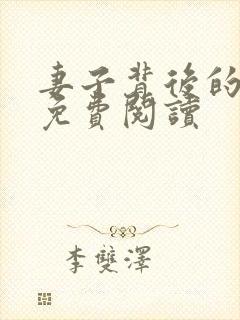 妻子背後的
免費閱讀
李雙澤